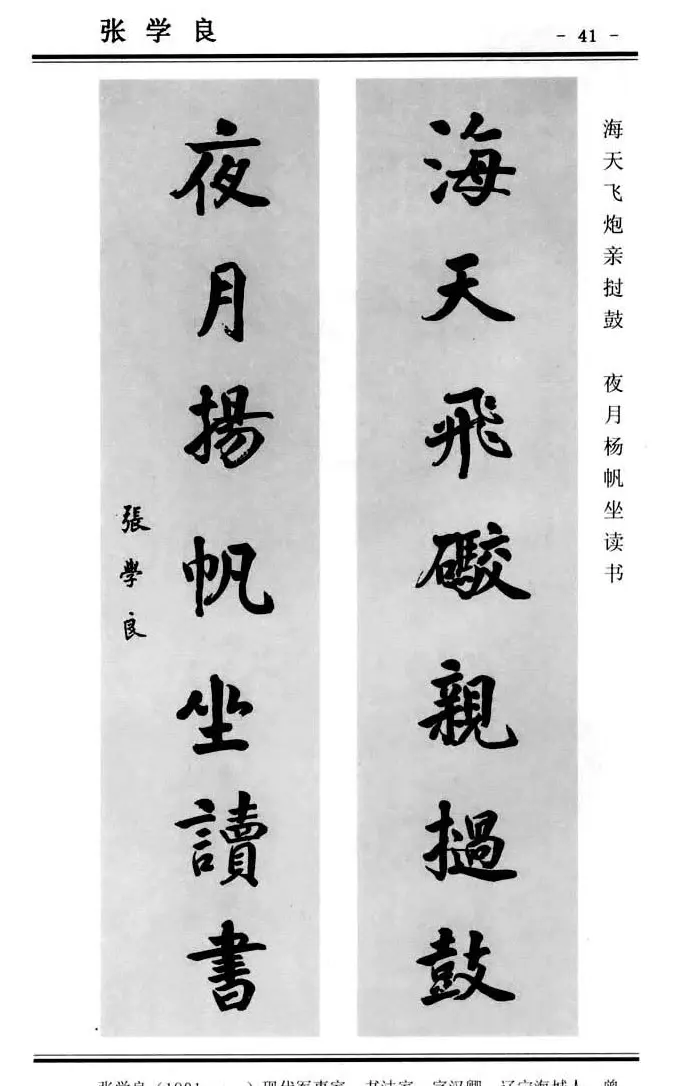 张学良
- 41 -
海天飞炮亲挝鼓 夜月杨帆坐读书
海天飛礮親撾鼓
夜月揚帆坐讀書
張學良